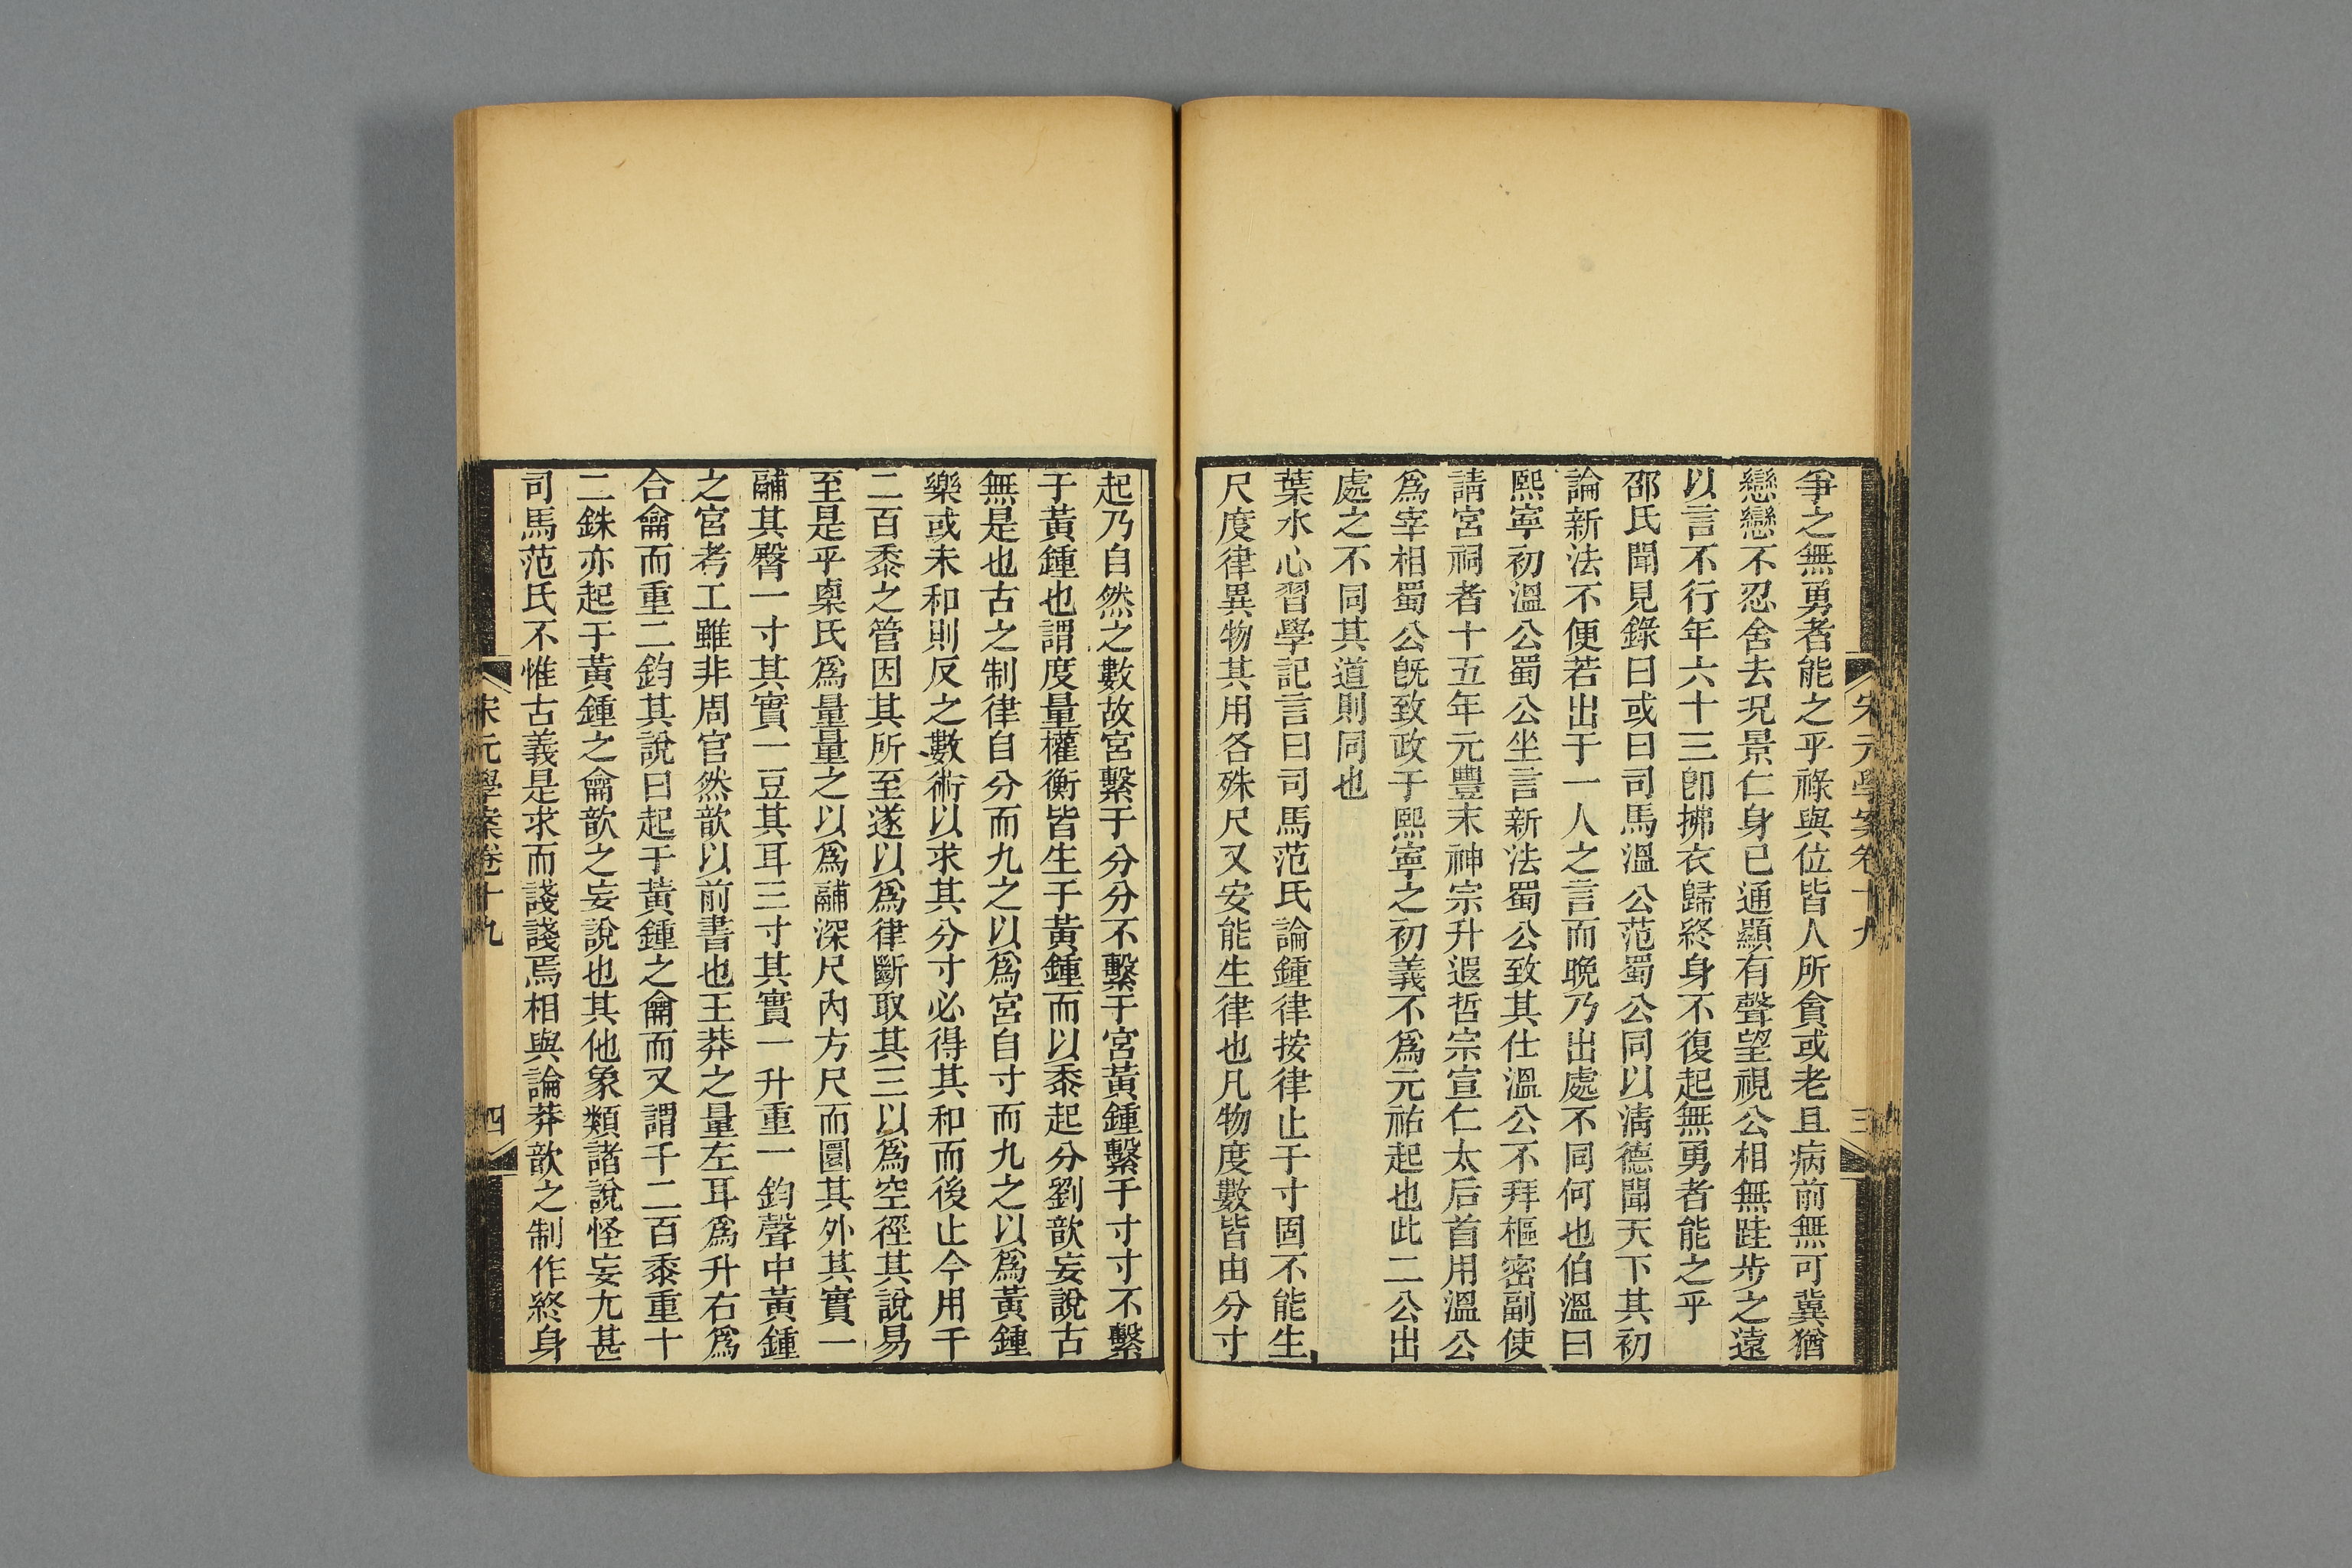 宋元學案卷十九
三
爭之無勇者能之乎祿與位皆人所貪或老且病前無可冀猶
戀戀不忍舍去況景仁身已通顯有聲望視公相無跬步之遠
以言不行年六十三卽拂衣歸終身不復起無勇者能之乎
邵氏聞見錄曰或曰司馬溫公范蜀公同以淸德聞天下其初
論新法不便若出于一人之言而晚乃出處不同何也伯溫曰
熙寧初溫公蜀公坐言新法蜀公致其仕溫公不拜樞密副使
請宮祠者十五年元豐末神宗升遐哲宗宣仁太后首用溫公
爲宰相蜀公旣致政于熙寧之初義不爲元祐起也此二公出
處之不同其道則同也
葉水心習學記言曰司馬范氏論鍾律按律止于寸固不能生
尺度律異物其用各殊尺又安能生律也凡物度數皆由分寸
起乃自然之數故宮繫于分分不繫于宮黃鍾繫于寸寸不繫
于黃鍾也謂度量權衡皆生于黃鍾而以黍起分劉歆妄說古
無是也古之制律自分而九之以爲宮自寸而九之以爲黃鍾
樂或未和則反之數術以求其分寸必得其和而後止今用千
二百黍之管因其所至遂以爲律斷取其三以爲空徑其說易
至是乎㮚氏爲量量之以爲鬴深尺內方尺而圜其外其實一
鬴其臀一寸其實一豆其耳三寸其實一升重一鈞聲中黃鍾
之宮考工雖非周官然歆以前書也王莽之量左耳爲升右爲
合龠而重二鈞其說曰起于黃鍾之龠而又謂千二百黍重十
二銖亦起于黃鍾之龠歆之妄說也其他象類諸說怪妄尢甚
司馬范氏不惟古義是求而諓諓焉相與論莽歆之制作終身
宋元學案卷十九
四